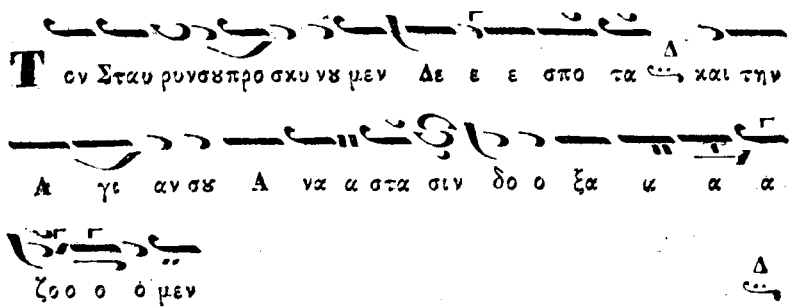 Τον Σταυ ρυνσȣπρο σκυ νȣ μεν Δε ε ε σπο τα Δ και την
Α γι αν σȣ Α να α στα σιν δο ο ξα α α α
ζοο ο ό μεν Δ